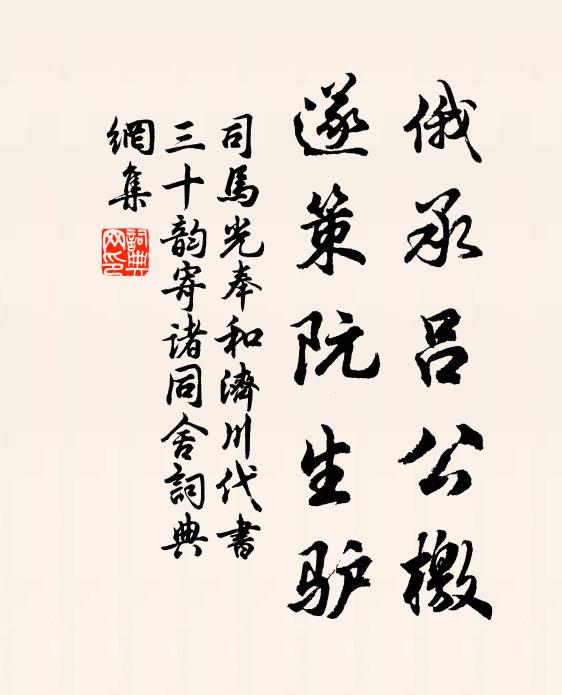 俄承吕公檄
遂策阮生驴
司馬光奉和濟川代書
三十韵寄诸同舍詞典
網集
詞典
网印